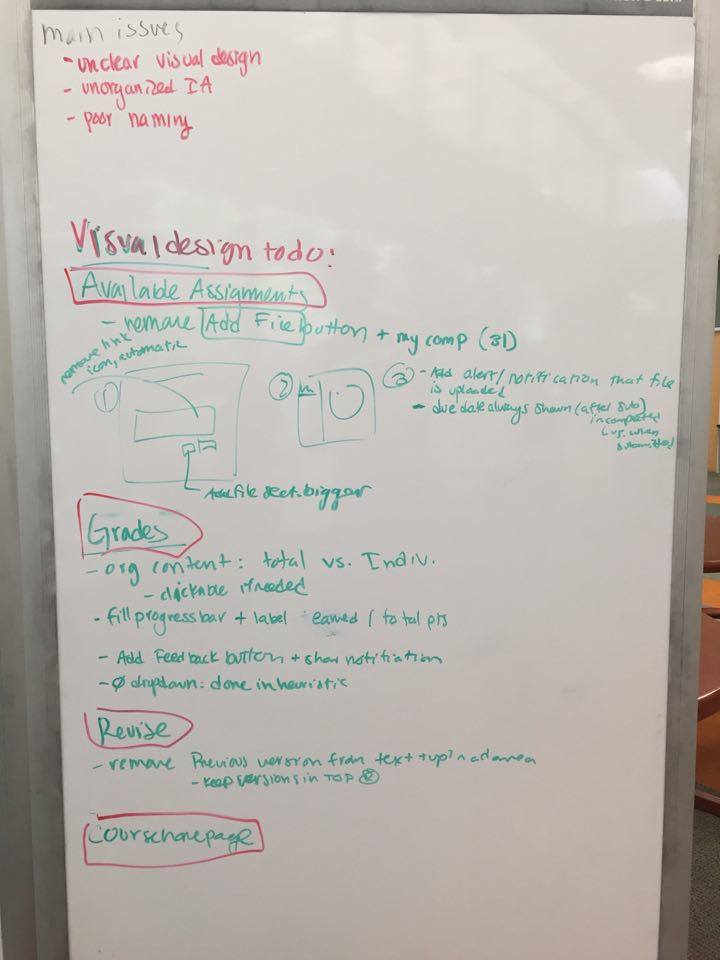 main issues
- unclear visual design
- unorganized IA
- poor naming
Visual design todo:
Available Assignments
- remove Add File button + my comp (31)
remove link
icon, automatic
①
②
③ - Add alert/notification that file
is uploaded
- due date always shown (after sub)
incompleted
vs. when
submitted
Add file sect. bigger
Grades
- org content: total vs. Indiv.
- clickable if needed
- fill progress bar + label : earned / total pts
- Add Feedback button + show notification
- Ø dropdown: done in heuristic
Revise
- remove Previous version from text +
- keep versions in TOP R
Course homepage